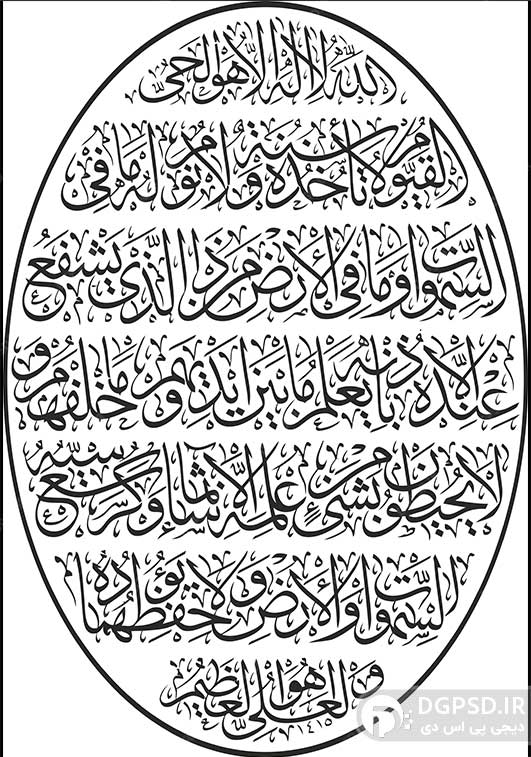 الله لا اله الا هو الحی
القیوم لا تأخذه سنة ولا نوم له ما فی
السموات وما فی الأرض من ذا الذی یشفع
عنده إلا بإذنه یعلم ما بین أیدیهم وما خلفهم و
لا یحیطون بشیء من علمه إلا بما شاء وسع کرسیه
السموات والأرض ولا یؤده حفظهما
وهو العلی العظیم
۱۴۱۵
DGPSD.IR
دیجی پی اس دی